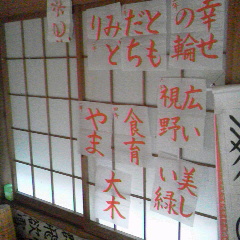 幸せ
の輪
とも
だち
みど
り
広い
視野
食育
やま
美し
い緑
大木